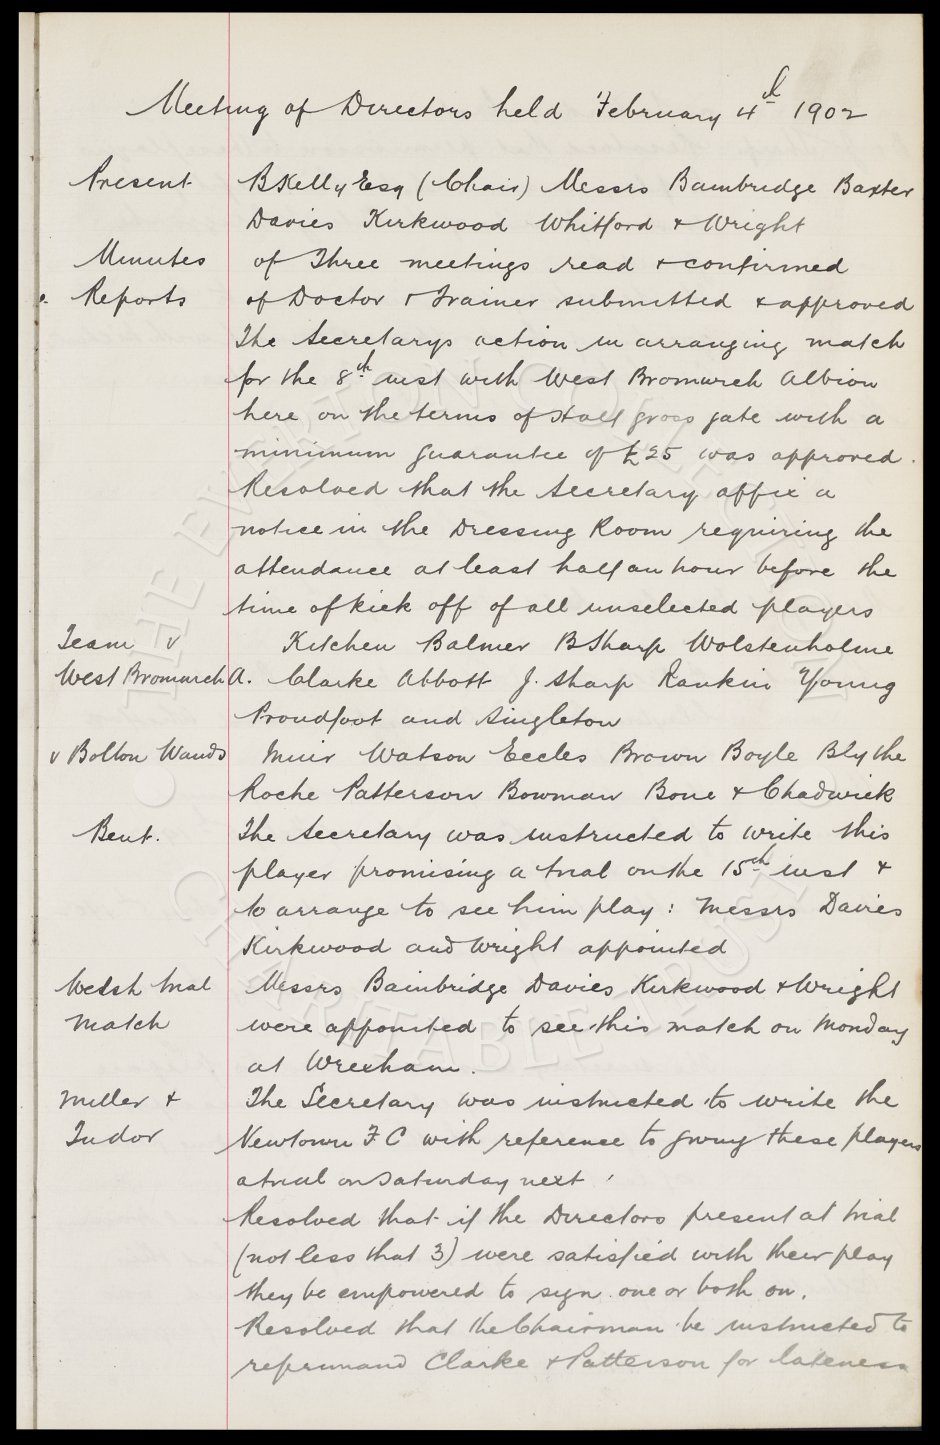 Meeting of Directors held February 4th 1902
Present B Kelly Esq (Chair) Messrs Bainbridge Baxter
Davies Kirkwood Whitford & Wright
Minutes of Three meetings read & confirmed
Reports of Doctor & Trainer submitted & approved
The Secretarys action in arranging match
for the 8th inst with West Bromwich Albion
here on the terms of Half gross gate with a
minimum guarantee of £25 was approved.
Resolved that the Secretary affix a
notice in the Dressing Room requiring the
attendance at least half an hour before the
time of kick off of all unselected players
Team v Kitchen Balmer B Sharp Wolstenholme
West Bromwich A. Clarke Abbott J. Sharp Rankin Young
Proudfoot and Singleton
v Bolton Wands Muir Watson Eccles Brown Boyle Blythe
Roche Patterson Bowman Bone & Chadwick
Bent. The Secretary was instructed to write this
player promising a trial on the 15th inst &
to arrange to see him play: Messrs Davies
Kirkwood and Wright appointed
Welsh trial Messrs Bainbridge Davies Kirkwood & Wright
Match were appointed to see this match on Monday
at Wrexham.
Miller & The Secretary was instructed to write the
Tudor Newtown F C with reference to giving these players
a trial on Saturday next.
Resolved that if the Directors present at trial
(not less that 3) were satisfied with their play
they be empowered to sign one or both on.
Resolved that the Chairman be instructed to
reprimand Clarke & Patterson for lateness
THE EVERTON COLLECTION
CHARITABLE TRUST